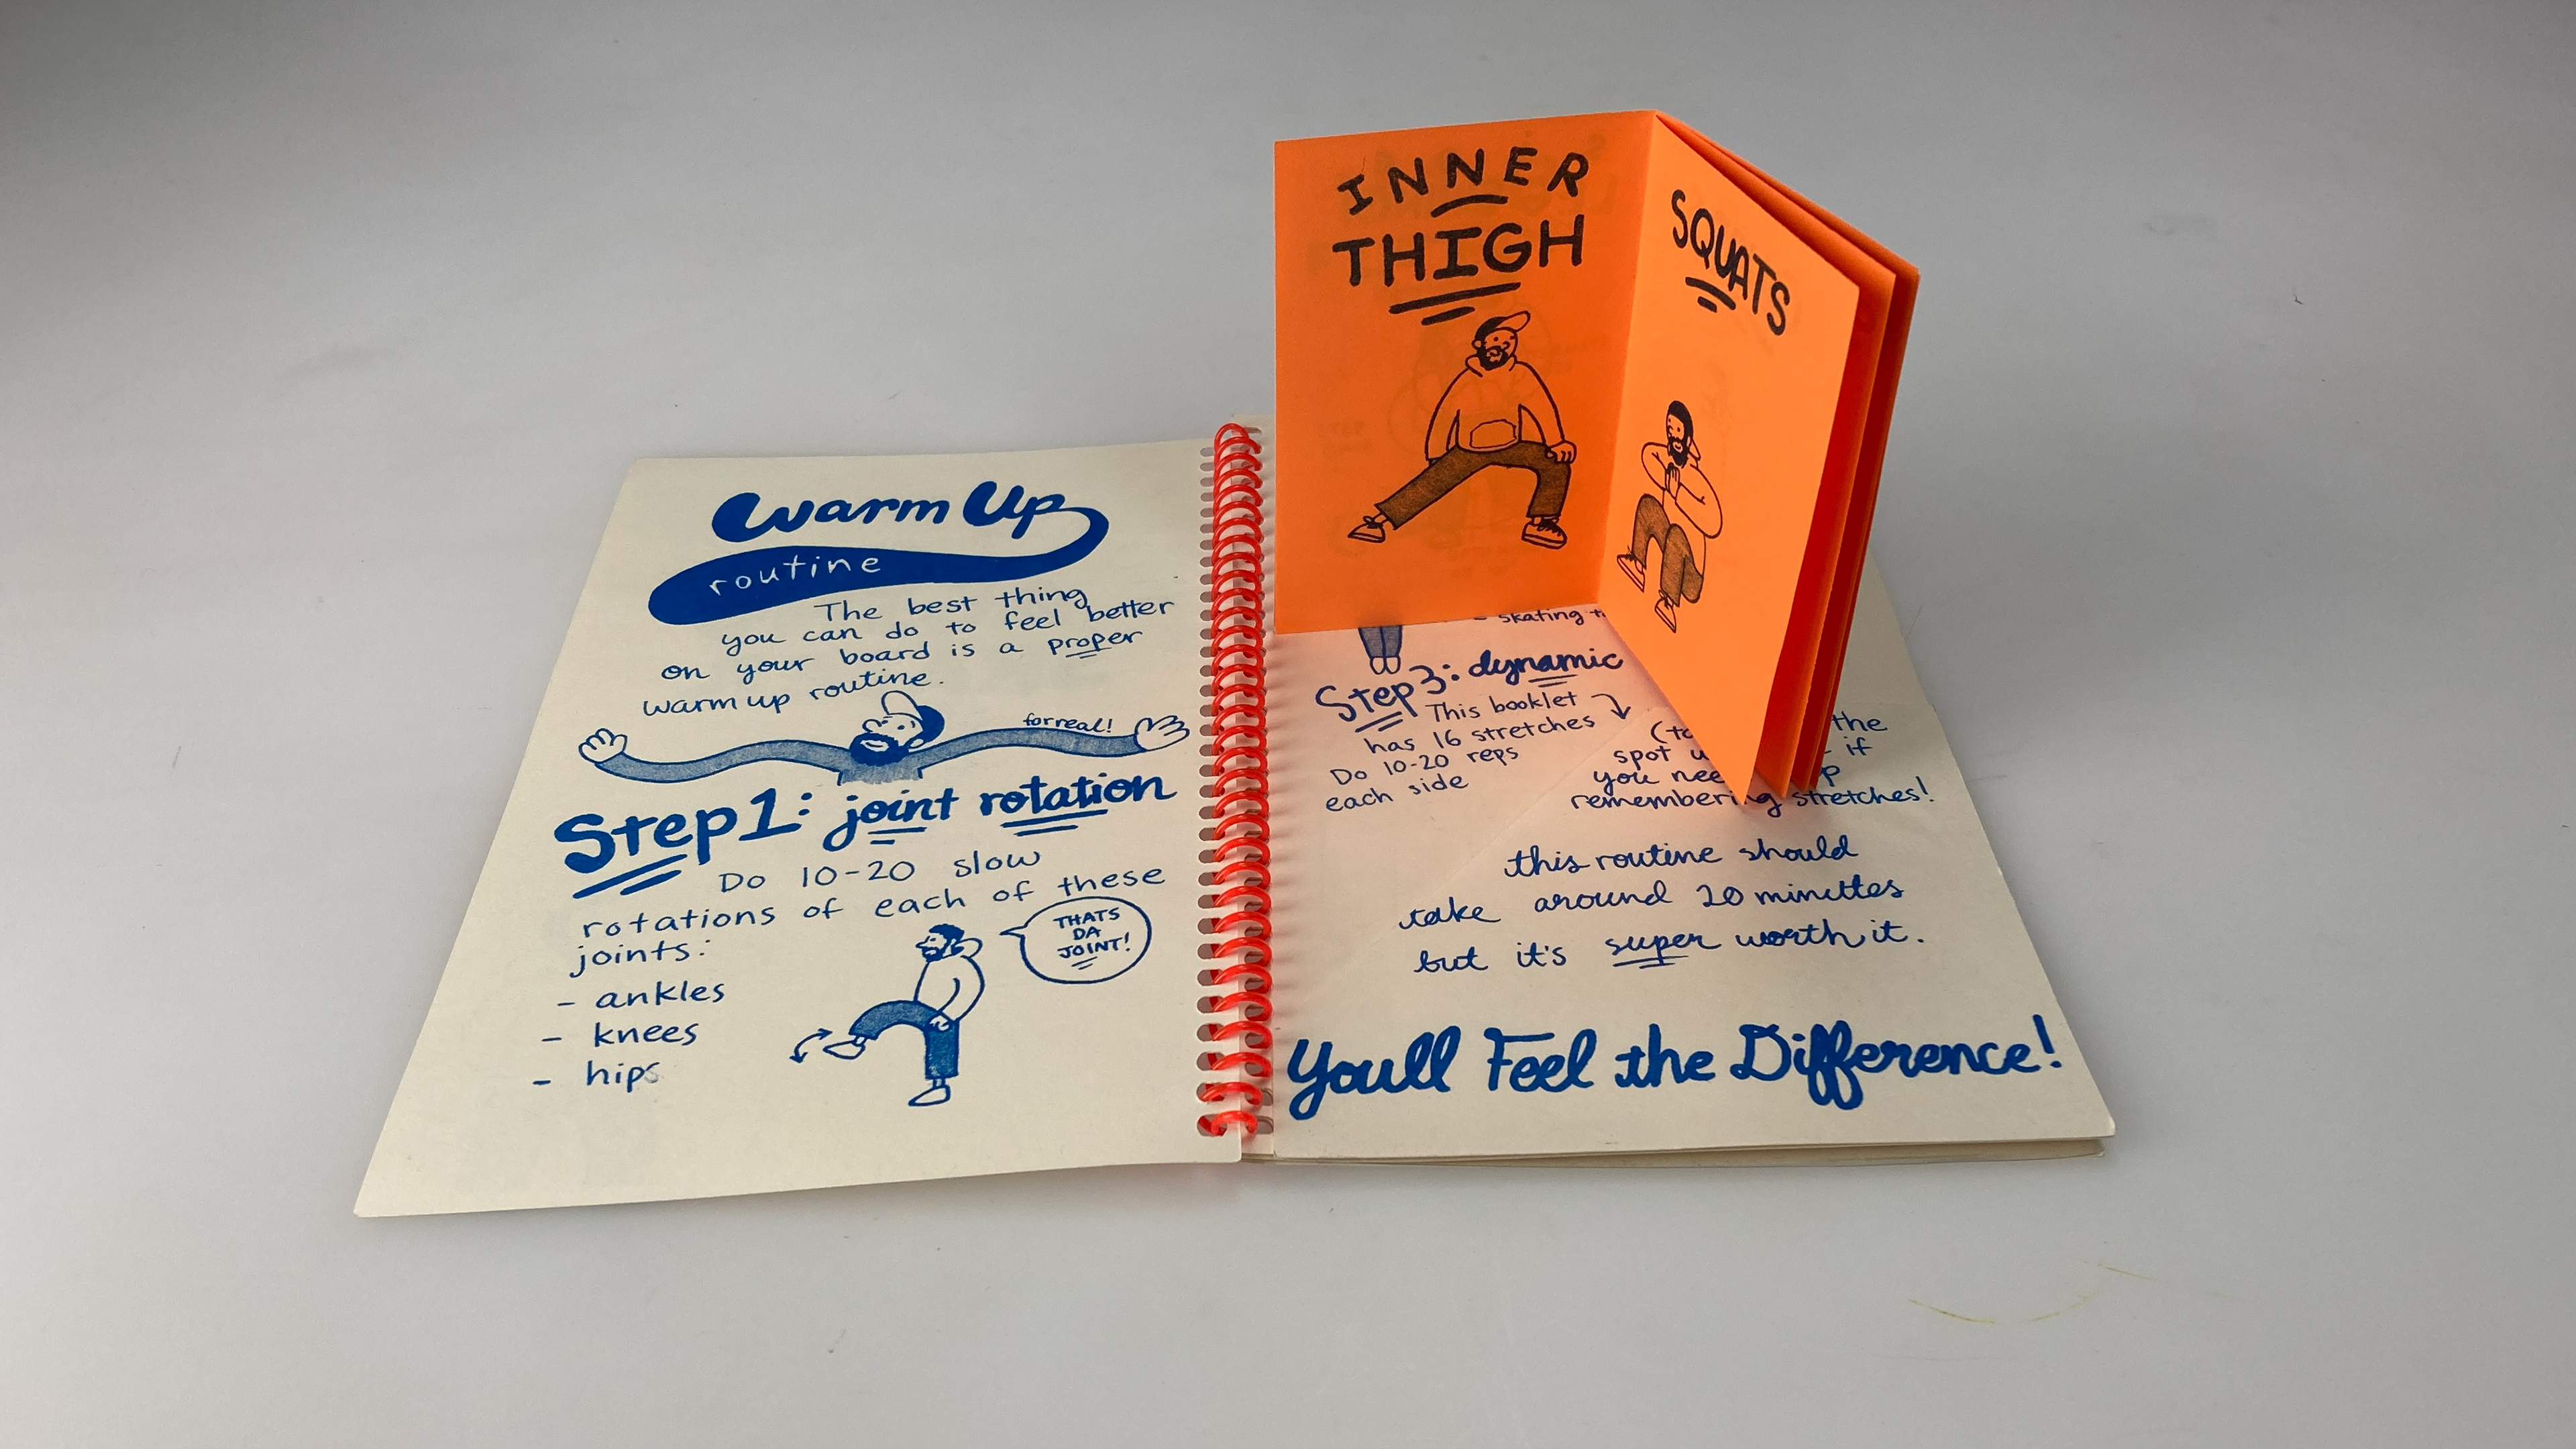 warm Up
routine
The best thing
you can do to feel better
on your board is a proper
warm up routine.
for real!
Step 1: joint rotation
Do 10-20 slow
rotations of each of these
joints:
THATS
DA
JOINT!
- ankles
- knees
- hips
INNER
THIGH
SQUATS
skating
Step 3: dynamic
This booklet
has 16 stretches
Do 10-20 reps
each side
the
spot if
you
remembering stretches!
this routine should
take around 20 minuttes
but it's super worth it.
Youll Feel the Difference!